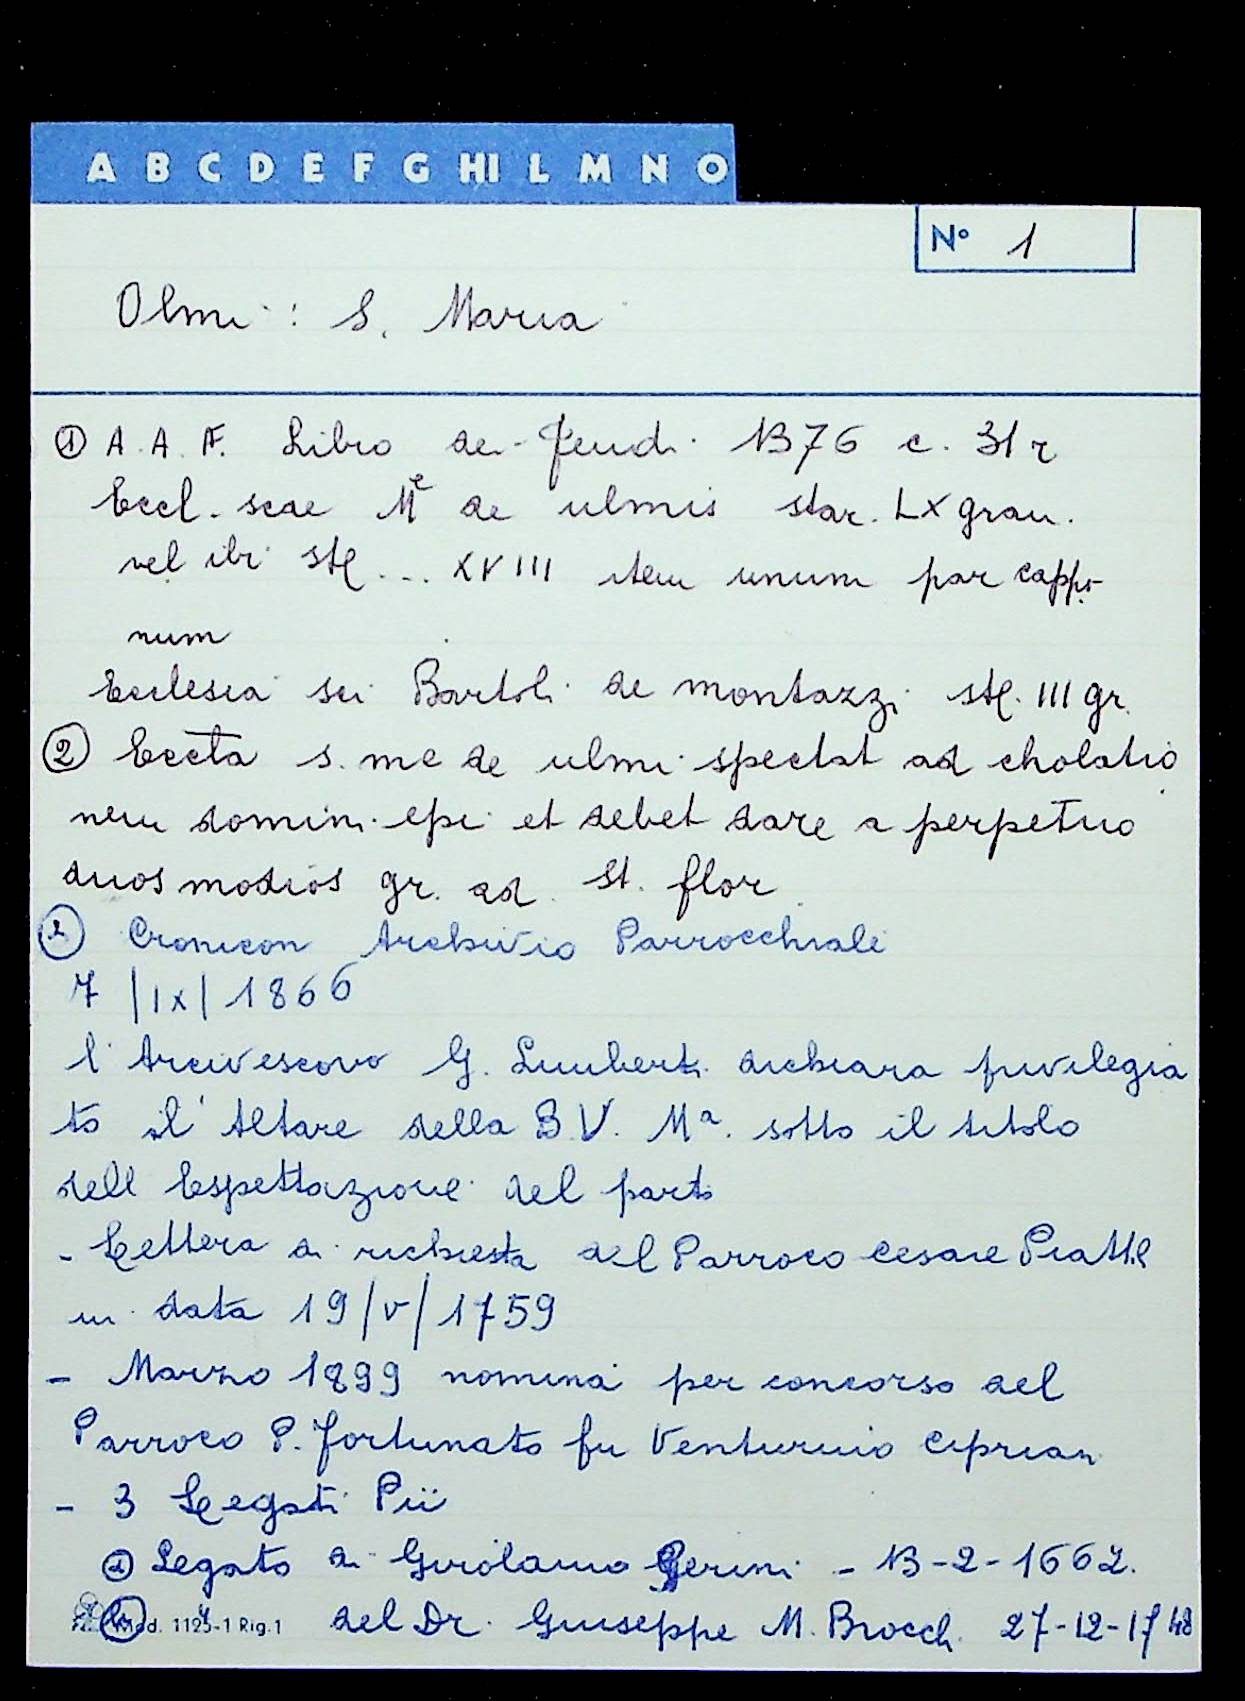 A B C D E F G HI L M N O
N° 1
Olmi : S. Maria
① A. A. F. Libro dei Feudi 1376 c. 31 r
Eccl. scae Mᵉ de ulmis star. LX gran.
vel ibi stl ... XVIII item unum par cappo
num
Ecclesia sci Bartoli de montazzi stl. III gr.
② Eccta s. me de ulmi spectat ad cholatio
nem domini epi et debet dare a perpetuo
duos modios gr. ad St. flor
② Cronicon Archivio Parrocchiale
7 |IX| 1866
l'Arcivescovo G. Limberti dichiara privilegia
to il' Altare della B.V. Mª. sotto il titolo
dell Espettazione del parto
- Lettera di richiesta del Parroco Cesare
in data 19/V/1759
- Marzo 1899 nomina per concorso del
Parroco P. Fortunato fu Venturino Cipriani
- 3 Legati Pii
Legato di Girolamo Gerini - 13-2-1662.
Mod. 1125-1 Rig.1 del Dr. Giuseppe M. Brocchi 27-12-1748